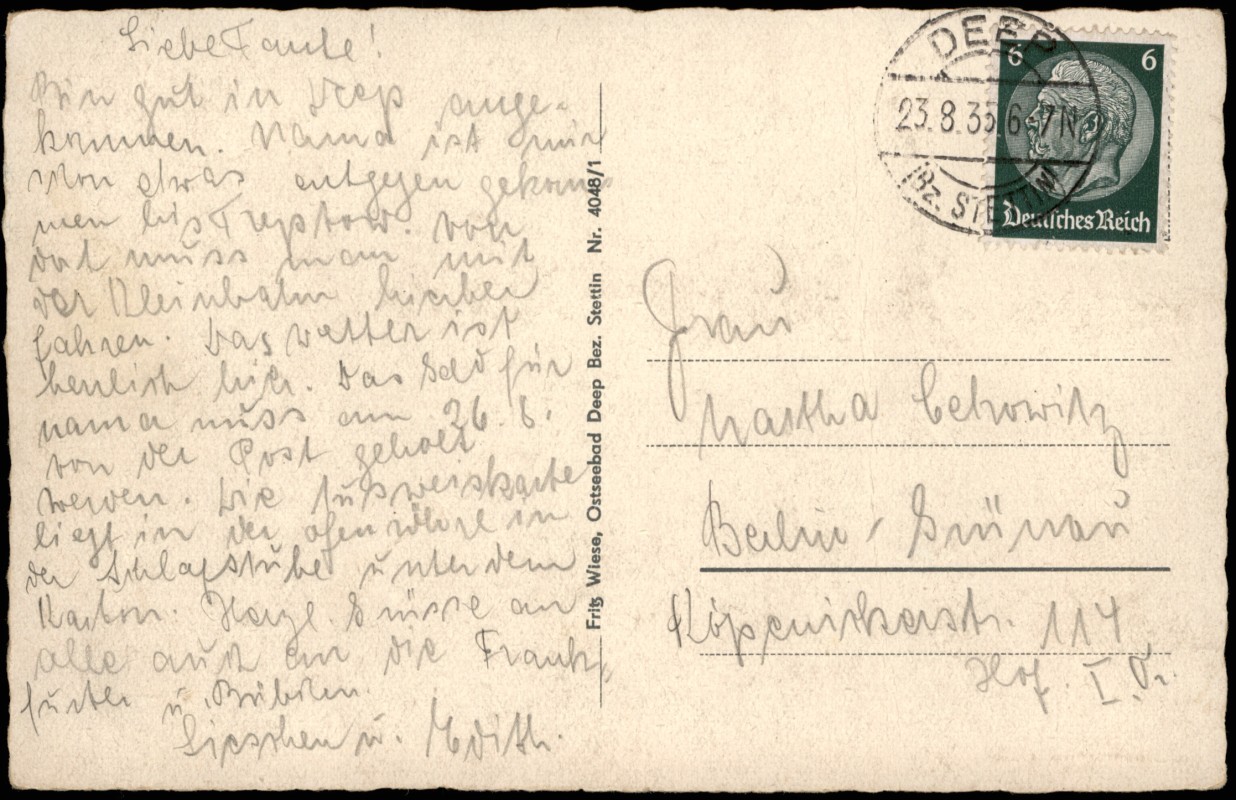 Liebe Tante!
Bin gut in Deep ange-
kommen. Mama ist mir
schon etwas entgegen gekom-
men bis Treptow. Von
dort muss man mit
der Kleinbahn hierher
fahren. Das Wetter ist
herrlich hier. Das Geld für
mama muss am 26. 8.
von der Post geholt
werden. Die Ausweiskarte
liegt in der Ofenröhre in
der Schlafstube unter dem
Karton. Herzl Grüsse an
alle auch an die Frank-
furter u. Bübchen.
Lieschen u. Edith.
Fritz Wiese, Ostseebad Deep Bez. Stettin Nr. 4048/1
DEEP
23.8.35 6-7N
(Bz. STETTIN)
6 6
Deutsches Reich
Frau
Martha
Berlin-Grünau
Köpenickerstr. 114
Hof. I. Tr.